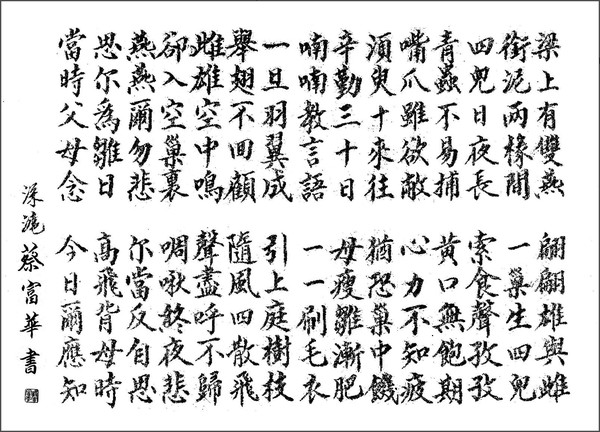 梁上有雙燕 翩翩雄與雌
銜泥兩椽間 一巢生四兒
四兒日夜長 索食聲孜孜
青蟲不易捕 黃口無飽期
嘴爪雖欲敝 心力不知疲
須臾十來往 猶恐巢中饑
辛勤三十日 母瘦雛漸肥
喃喃教言語 一一刷毛衣
一旦羽翼成 引上庭樹枝
舉翅不回顧 隨風四散飛
雌雄空中鳴 聲盡呼不歸
卻入空巢裏 啁啾終夜悲
燕燕爾勿悲 尔當反自思
思尔為雛日 高飛背母時
當時父母念 今日爾應知
深滬 蔡富華書